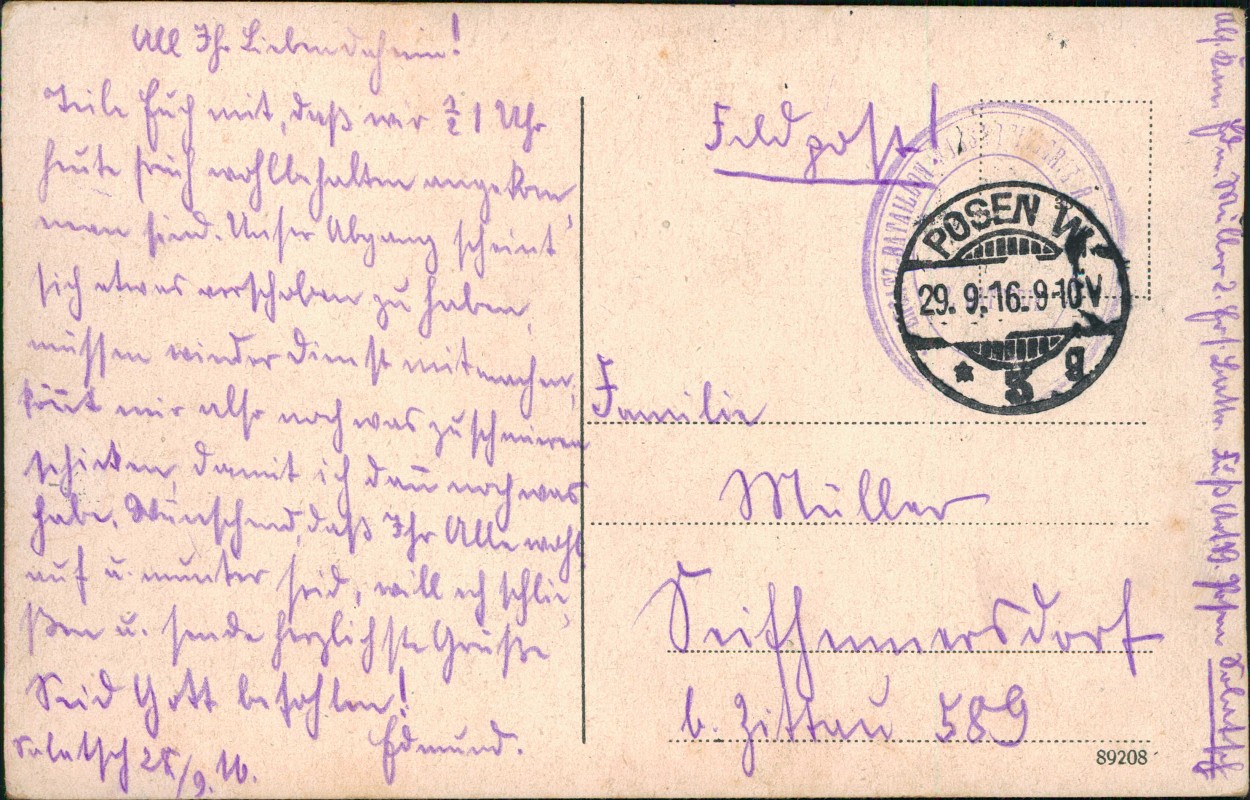 All Ihr Lieben daheim!
Teile Euch mit, daß wir ½ 1 Uhr
heute früh wohlbehalten angekom,
men sind. Unser Abgang scheint
sich etwas verschoben zu haben,
müssen wieder Dienst mitmachen,
könnt mir also noch was zu schmieren
schicken, damit ich dañ noch was
habe. Wünschend, daß Ihr Alle wohl
auf u. munter seid, will ich schlie,
ßen u. sende herzlichste Grüße
Seid Gott befohlen!
Edmund.
Solatsch 28/9.16.
Feldpost!
BATAILLON
POSEN W.
29. 9. 16. 9-10 V
* 3 g
Familie
Müller
Seifhennersdorf
b. Zittau 589
89208
Edm. Müller 2. Fuß Posen Solatsch